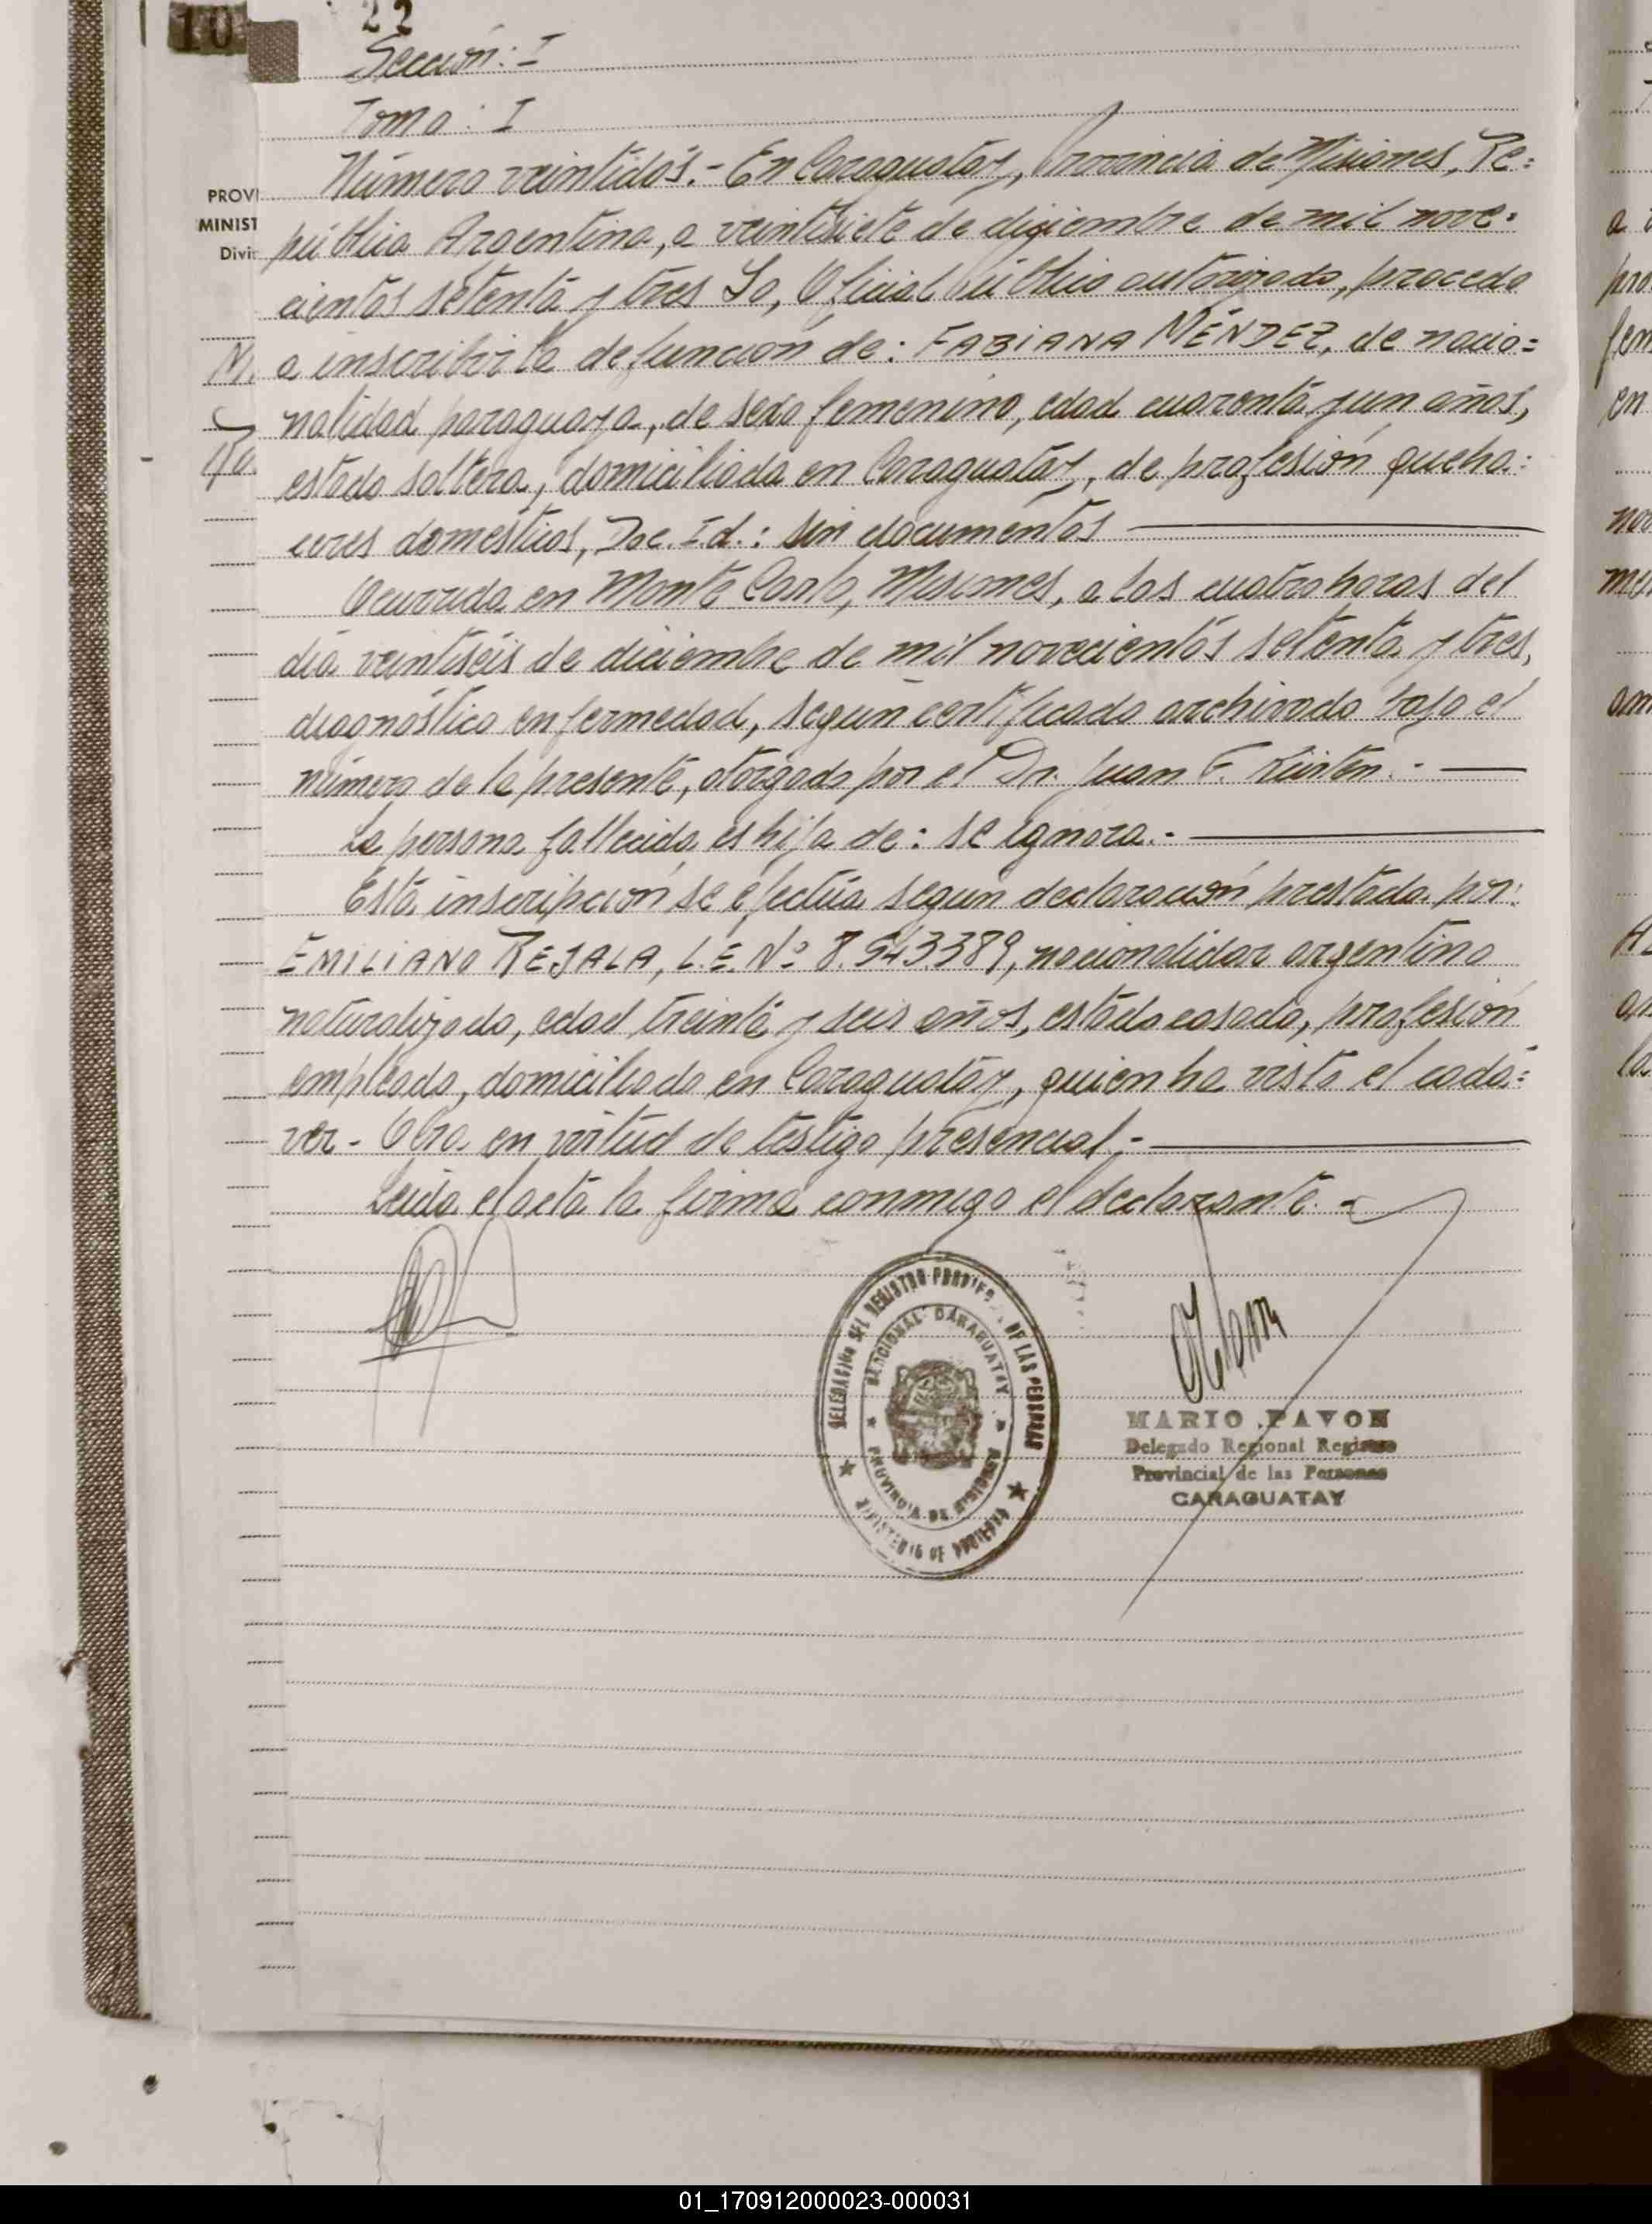 10
22
Sección: I
Tomo: I
Número veintidós.- En Caraguatay, Provincia de Misiones, Re=
PROVI
MINIST
Divi
pública Argentina, a veintisiete de diciembre de mil nove=
cientos setenta y tres Yo, Oficial Público autorizado, procedo
a inscribir la defunción de: FABIANA MÉNDEZ, de nacio=
nalidad paraguaya, de sexo femenino, edad cuarenta y un años,
estado soltera, domiciliada en Caraguatay, de profesión queha=
ceres domésticos, Doc. Id.: sin documentos
Ocurrida en Monte Carlo, Misiones, a las cuatro horas del
día veintiséis de diciembre de mil novecientos setenta y tres,
diagnóstico enfermedad, según certificado archivado bajo el
número de la presente, otorgado por el Dr. Juan E. Kürten.-
La persona fallecida es hija de: se ignora.-
Esta inscripción se efectúa según declaración prestada por:
EMILIANO REJALA, L.E. Nº 8.543389, nacionalidad argentino
naturalizado, edad treinta y seis años, estado casado, profesión
empleado, domiciliado en Caraguatay, quien ha visto el cadá=
ver - Obra en virtud de testigo presencial.-
Leída el acta la firma conmigo el declarante.-
DELEGACIÓN DEL REGISTRO PROVINCIAL DE LAS PERSONAS
SECCIONAL CARAGUATAY
PROVINCIA DE MISIONES
MINISTERIO DE GOBIERNO
MARIO PAVON
Delegado Regional Registro
Provincial de las Personas
CARAGUATAY
01_170912000023-000031